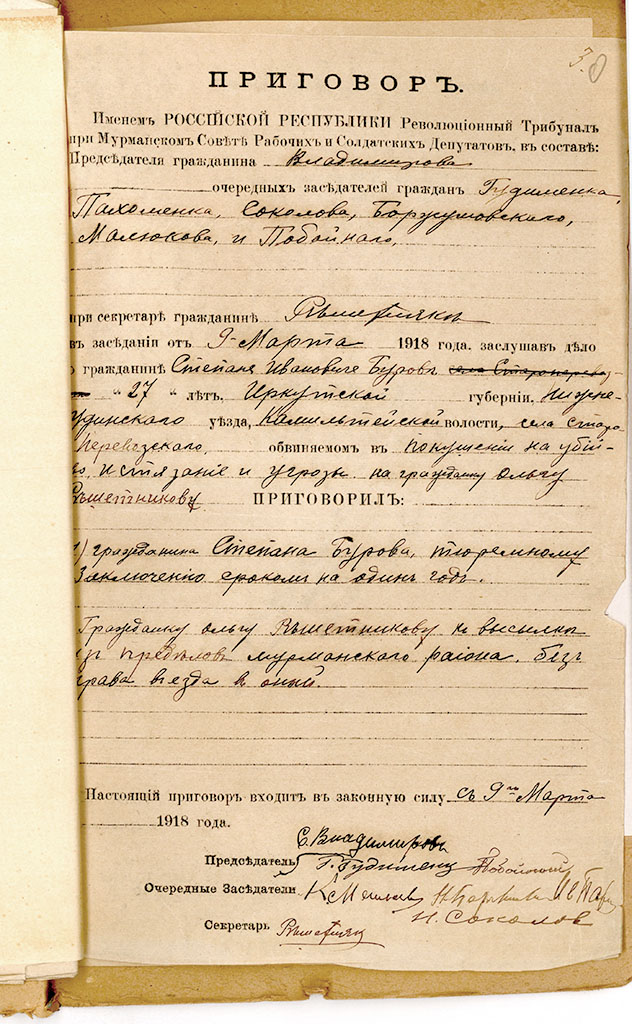 3.
ПРИГОВОРЪ.
Именемъ РОССІЙСКОЙ РЕСПУБЛИКИ Революціонный Трибуналъ
при Мурманскомъ Совѣтѣ Рабочихъ и Солдатскихъ Депутатовъ, въ составѣ:
Предсѣдателя гражданина Владимирова
очередныхъ засѣдателей граждан Гудименка,
Пахоменка, Соколова, Боржушовского,
Малюкова, и Побойнаго,
при секретарѣ гражданинѣ
въ засѣданіи отъ 9 Марта 1918 года, заслушавъ дѣло
гражданинѣ Степанѣ Ивановиче Буровѣ
"27" лѣтъ, Иркутской губерніи, Нижне-
удинского уѣзда, Камильтейской волости, села Старо
Перевозского, обвиняемомъ въ покушении на убій-
во, истязаніе и угрозы на гражданку Ольгу
Рѣшетникову ПРИГОВОРИЛЪ:
1) гражданина Степана Бурова, тюремному
Заключенію срокомъ на одинъ годъ.
Гражданку Ольгу Рѣшетникову къ высылкѣ
изъ предѣловъ Мурманского раіона, безъ
права въезда в оный.
Настоящій приговоръ входитъ въ законную силу съ 9го Марта
1918 года.
С. Владимировъ
Предсѣдатель Г. Гудименко Побойный
Очередные Засѣдатели К М
Н. Соколов
Секретарь